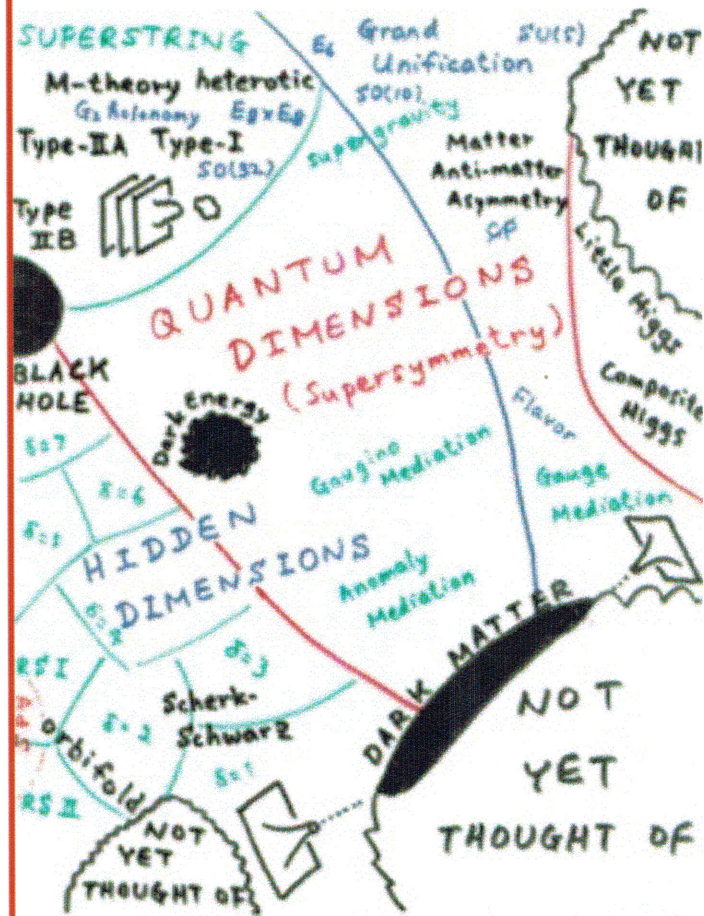 SUPERSTRING
M-theory heterotic
G₂ Holonomy E8xE8
Type-IIA Type-I
SO(32)
Type
IIB
E6 Grand SU(5)
Unification
SO(10)
supergravity
Matter
Anti-matter
Asymmetry
CP
NOT
YET
THOUGHT
OF
Little Higgs
Composite
Higgs
QUANTUM
DIMENSIONS
(Supersymmetry)
BLACK
HOLE
Dark Energy
Flavor
Gaugino
Mediation
Gauge
Mediation
Anomaly
Mediation
δ=7
δ=6
HIDDEN
DIMENSIONS
δ=3
δ=2
δ=1
RSI
RSII
orbifold
Scherk-
Schwarz
DARK MATTER
NOT
YET
THOUGHT OF
NOT
YET
THOUGHT OF